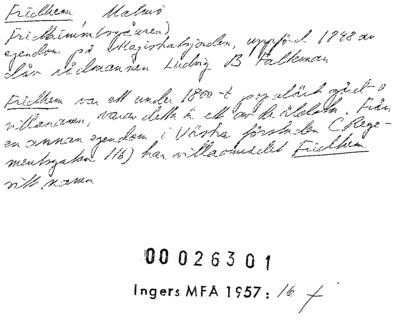 Fridhem, Malmö
egendom på Magistratsjorden, uppförd 1848 av
dåv rådmannen Ludvig B Falkman
Fridhem var ett under 1800-t populärt gårds- o
villanamn, varav detta är ett av de äldsta. Från
en annan egendom i Västra förstaden (Rege-
mentsgatan 116) har villaområdet Fridhem
sitt namn
00026301
Ingers MFA 1957: 16 f